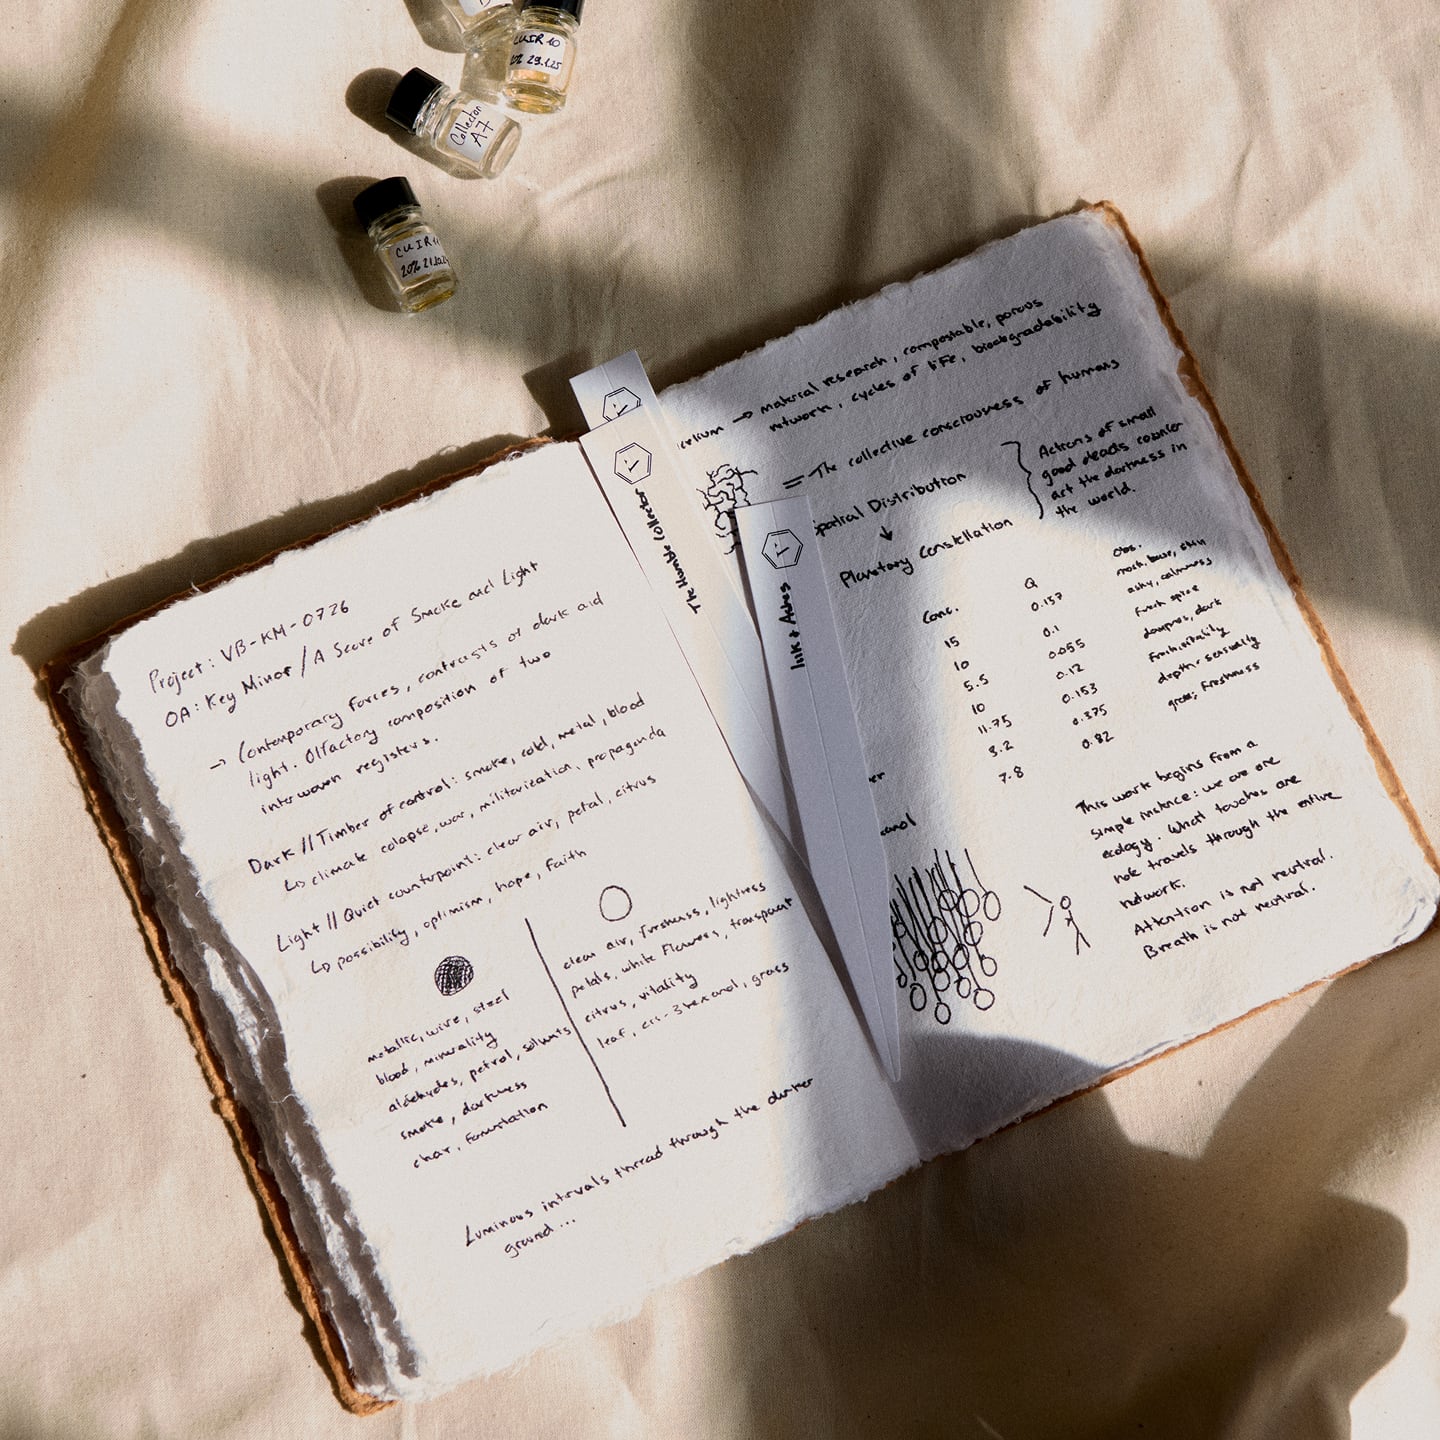 CUIR 10
29.1.25
Collector
A7
CUIR
20% 21.10.24
Project: VB-KM-0726
OA: Key Minor / A Score of Smoke and Light
→ Contemporary forces, contrasts of dark aid
light. Olfactory composition of two
interwoven registers.
Dark // Timber of control: smoke, cold, metal, blood
↳ climate colapse, war, militarization, propaganda
Light // Quiet counterpoint: clear air, petal, citrus
↳ possibility, optimism, hope, faith
metallic, wire, steel
blood, minerality
aldehydes, petrol, solvents
smoke, darkness
char, fomentation
clear air, freshness, lightness
petals, white flowers, transparent
citrus, vitality
leaf, cis-3 hexanol, grass
Luminous intervals thread through the darker
ground...
The Humble Collector
Ink + Ashes
celium → material research, compostable, porous
network, cycles of life, biodegradability
= The collective consciousness of humans
Spatial Distribution
↓
Planetary Constellation
Actions of small
good deeds counter
act the darkness in
the world.
Conc. Q Obs.
15 0.157 rich, skin
10 0.1 ashy, calmness
5.5 0.055 fresh spice
10 0.12 deepness, dark
11.75 0.153 fruit, vitality
3.2 0.375 depth - sensuality
7.8 0.82 grass, freshness
er
anol
This work begins from a
simple instance: we are
ecology. What touches one
node travels through the entire
network.
Attention is not neutral.
Breath is not neutral.